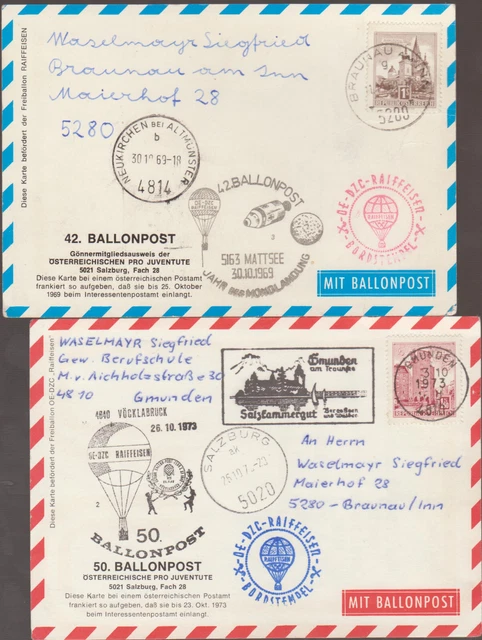 Diese Karte befördert der Freiballon RAIFFEISEN
Waselmayr Siegfried
Braunau am Inn
Maierhof 28
5280
BRAUNAU
5280
REPUBLIK ÖSTERREICH
NEUKIRCHEN BEI ALTMÜNSTER
b
30.10.69-18
4814
42. BALLONPOST
5163 MATTSEE
30.10.1969
JAHR DER MONDLANDUNG
OE-DZC-RAIFFEISEN
BORDSTEMPEL
42. BALLONPOST
Gönnermitgliedsausweis der
ÖSTERREICHISCHEN PRO JUVENTUTE
5021 Salzburg, Fach 28
Diese Karte bei einem österreichischen Postamt
frankiert so aufgeben, daß sie bis 25. Oktober
1969 beim Interessentenpostamt einlangt.
MIT BALLONPOST
Diese Karte befördert der Freiballon OE-DZC „Raiffeisen"
WASELMAYR Siegfried
Gew. Berufschule
M.v. Aichholzstraße 30
4810 Gmunden
Gmunden
am Traunsee
Salzkammergut
GMUNDEN
1973
4840 VÖCKLABRUCK
26.10.1973
OE-DZC RAIFFEISEN
2
50.
BALLONPOST
SALZBURG
5020
An Herrn
Waselmayr Siegfried
Maierhof 28
5280-Braunau/Inn
OE-DZC-RAIFFEISEN
RAIFFEISEN
BORDSTEMPEL
50. BALLONPOST
ÖSTERREICHISCHE PRO JUVENTUTE
5021 Salzburg, Fach 28
Diese Karte bei einem österreichischen Postamt
frankiert so aufgeben, daß sie bis 23. Okt. 1973
beim Interessentenpostamt einlangt.
MIT BALLONPOST